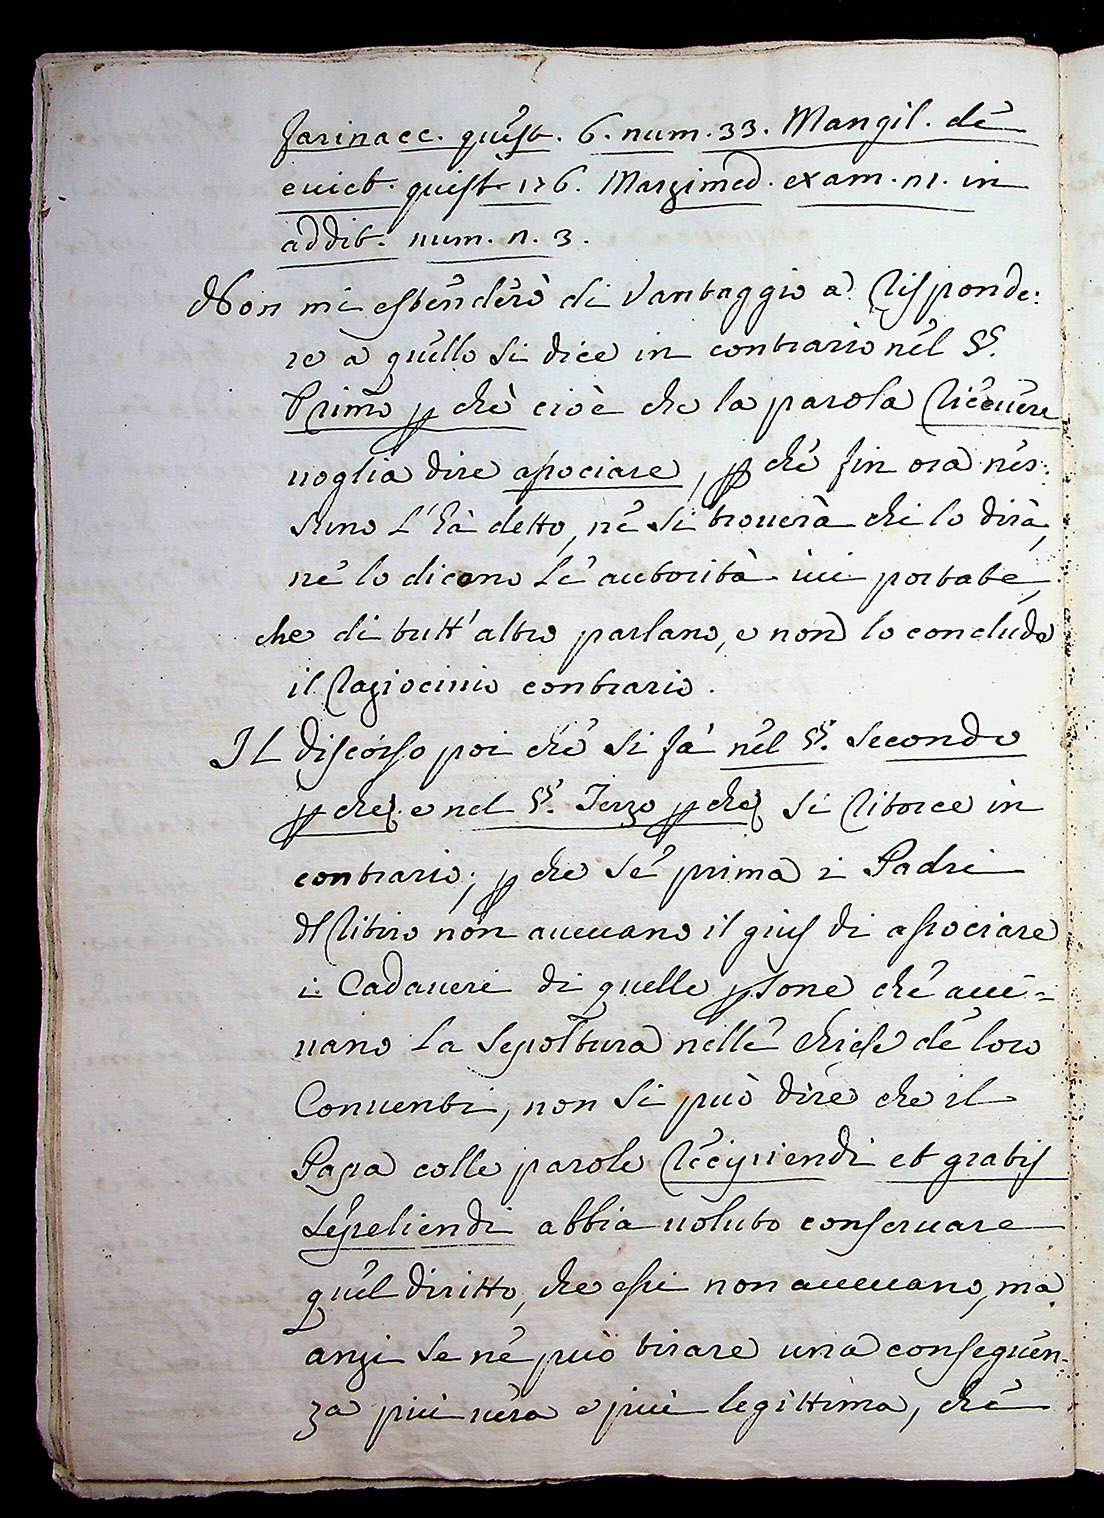 farinacc. quest. 6. num. 33. Mangil. de
euict. quist. 176. Marzimed. exam. n. in
addit. num. n. 3.
Non mi estenderò di vantaggio a Risponde:
re a quello si dice in contrario nel §.
Primo p che cioè che la parola Riceuere
uoglia dire associare, p che fin ora nes:
suno l'hà detto, ne si trouerà chi lo dirà,
ne lo dicono le autorità iui portate,
che di tutt'altro parlano, e non lo conclude
il Raziocinio contrario.
Il discorso poi che si fà nel §. secondo
p che, e nel §. Terzo p che, si ritorce in
contrario; p che se prima i Padri
dl Ritiro non aueuano il gius di associare
i Cadaueri di quelle psone che aue-
uano la sepoltura nelle chiese de loro
Conuenti, non si può dire che il
Papa colle parole Recipiendi et gratis
sepeliendi abbia uoluto conseruare
quel diritto, che essi non aueuano, ma
anzi se ne può tirare una conseguen-
za più uera e più legittima, che